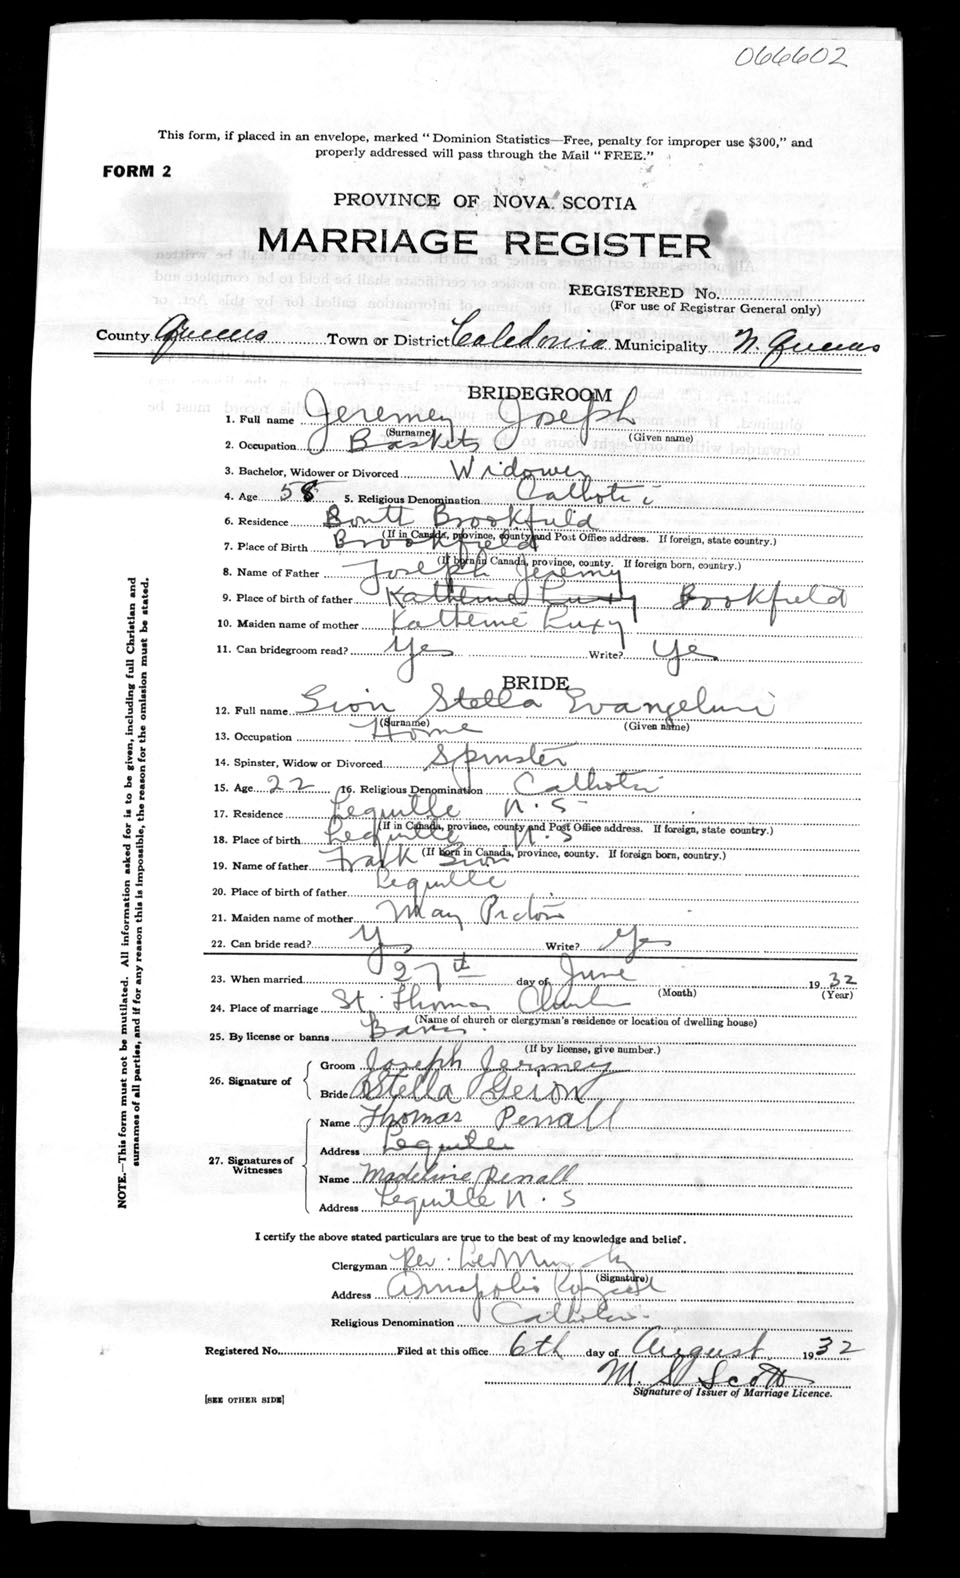 066602
This form, if placed in an envelope, marked "Dominion Statistics—Free, penalty for improper use $300," and
properly addressed will pass through the Mail "FREE."
FORM 2
PROVINCE OF NOVA SCOTIA
MARRIAGE REGISTER
REGISTERED No.
(For use of Registrar General only)
County Queens Town or District Caledonia Municipality N. Queens
BRIDEGROOM
1. Full name Jeremey Joseph
(Surname) (Given name)
2. Occupation Baskets
3. Bachelor, Widower or Divorced Widower
4. Age 58 5. Religious Denomination Catholic
6. Residence South Brookfield
(If in Canada, province, county and Post Office address. If foreign, state country.)
7. Place of Birth Brookfield
(If born in Canada, province, county. If foreign born, country.)
8. Name of Father Joseph Jeremy
9. Place of birth of father Katherine Luxy Brookfield
10. Maiden name of mother Katherine Luxy
11. Can bridegroom read? Yes Write? Yes
BRIDE
12. Full name Sion Stella Evangeline
(Surname) (Given name)
13. Occupation Home
14. Spinster, Widow or Divorced Spinster
15. Age 22 16. Religious Denomination Catholic
17. Residence Lequille N.S
(If in Canada, province, county and Post Office address. If foreign, state country.)
18. Place of birth Lequille N.S
(If born in Canada, province, county. If foreign born, country.)
19. Name of father Frank Sion
20. Place of birth of father Lequille
21. Maiden name of mother May Picton
22. Can bride read? Y Write? Yes
23. When married 27th day of June 1932
(Month) (Year)
24. Place of marriage St. Thomas Church
(Name of church or clergyman's residence or location of dwelling house)
25. By license or banns Banns
(If by license, give number.)
26. Signature of Groom Joseph Jermey
Bride Stella Geron
27. Signatures of Witnesses Name Thomas Penall
Address Lequille
Name Madeline Penall
Address Lequille N.S
I certify the above stated particulars are true to the best of my knowledge and belief.
Clergyman Rev.
(Signature)
Address Annapolis Royal
Religious Denomination Catholic
Registered No. Filed at this office 6th day of August 1932
M. S Scott
Signature of Issuer of Marriage Licence.
[SEE OTHER SIDE]
NOTE.—This form must not be mutilated. All information asked for is to be given, including full Christian and
surnames of all parties, and if for any reason this is impossible, the reason for the omission must be stated.